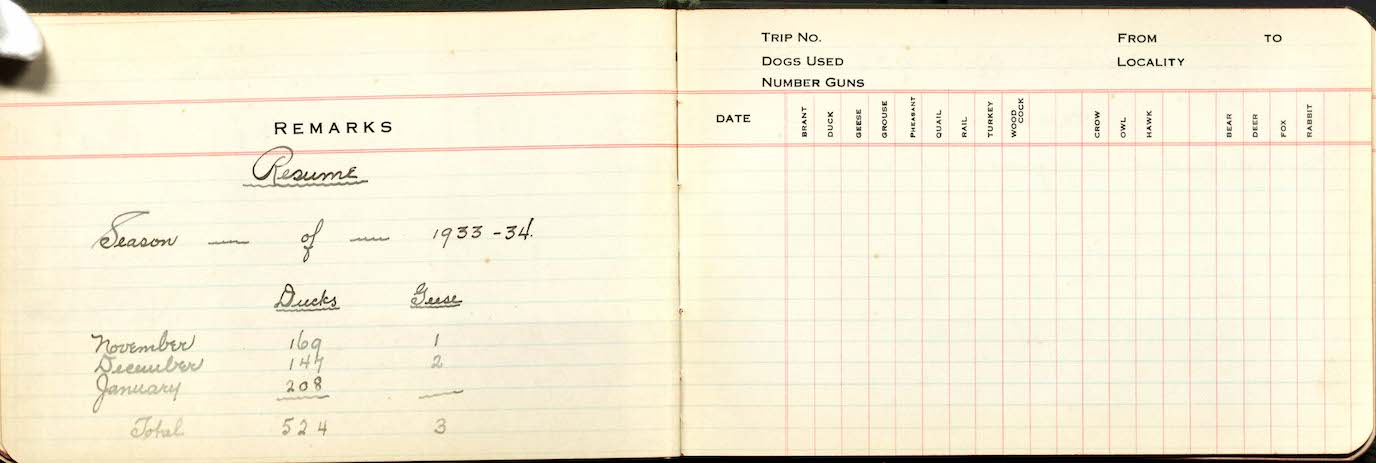 REMARKS
Resume
Season — of — 1933-34.
Ducks Geese
November 169 1
December 147 2
January 208 —
Total 524 3
TRIP NO. FROM TO
DOGS USED LOCALITY
NUMBER GUNS
DATE BRANT DUCK GEESE GROUSE PHEASANT QUAIL RAIL TURKEY WOOD COCK CROW OWL HAWK BEAR DEER FOX RABBIT